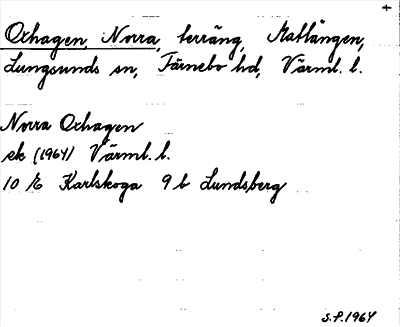 +
Oxhagen, Norra, terräng, Matlängen,
Lungsunds sn, Färnebo hd, Värml. l.
Norra Oxhagen
ek (1964) Värml. l.
10 E Karlskoga 9 b Lundsberg
S.P. 1964